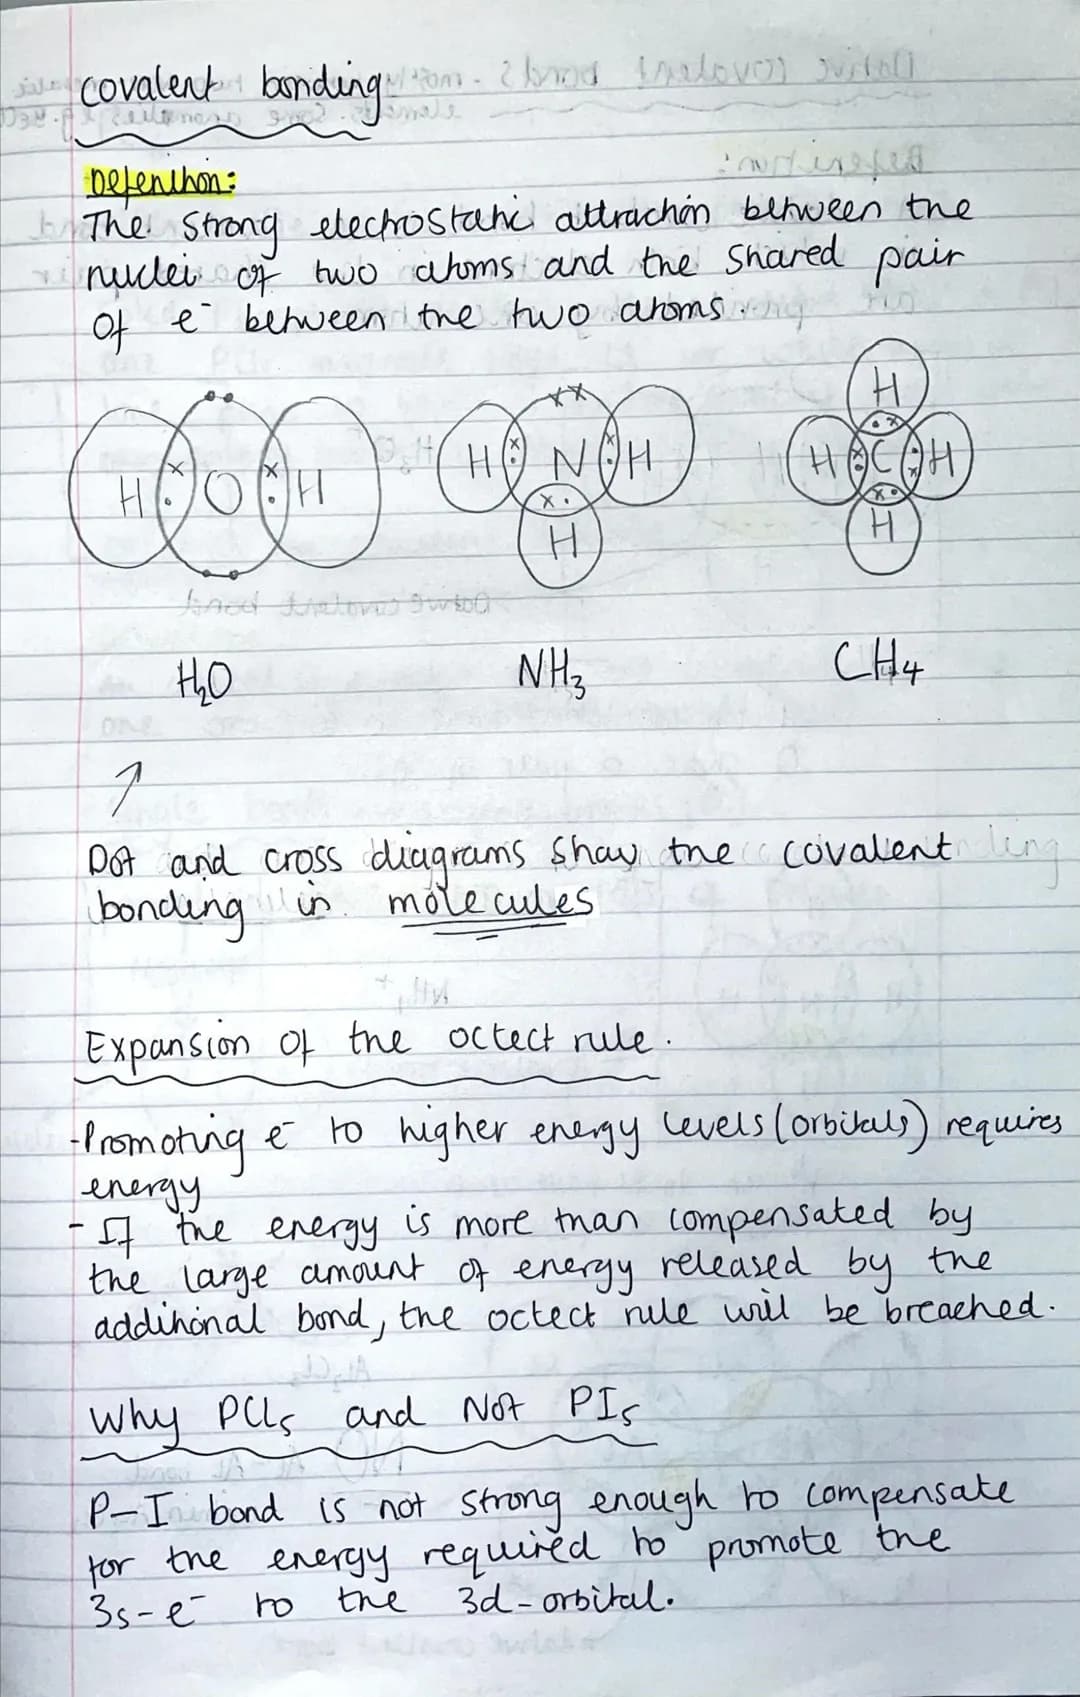 covalent bonding
Defenition:
The strong electrostatic attraction between the
nuclei of two atoms and the shared pair
of e⁻ between the two atoms.
H O H
H N H
H
H
H C H
H
H₂O NH₃ CH₄
Dot and cross diagrams show the covalent
bonding in molecules
Expansion of the octect rule.
-Promoting e⁻ to higher energy levels (orbitals) requires
energy
- If the energy is more than compensated by
the large amount of energy released by the
additional bond, the octect rule will be breached.
Why PCl₅ and Not PI₅
P-I bond is not strong enough to compensate
for the energy required to promote the
3s-e⁻ to the 3d-orbital.